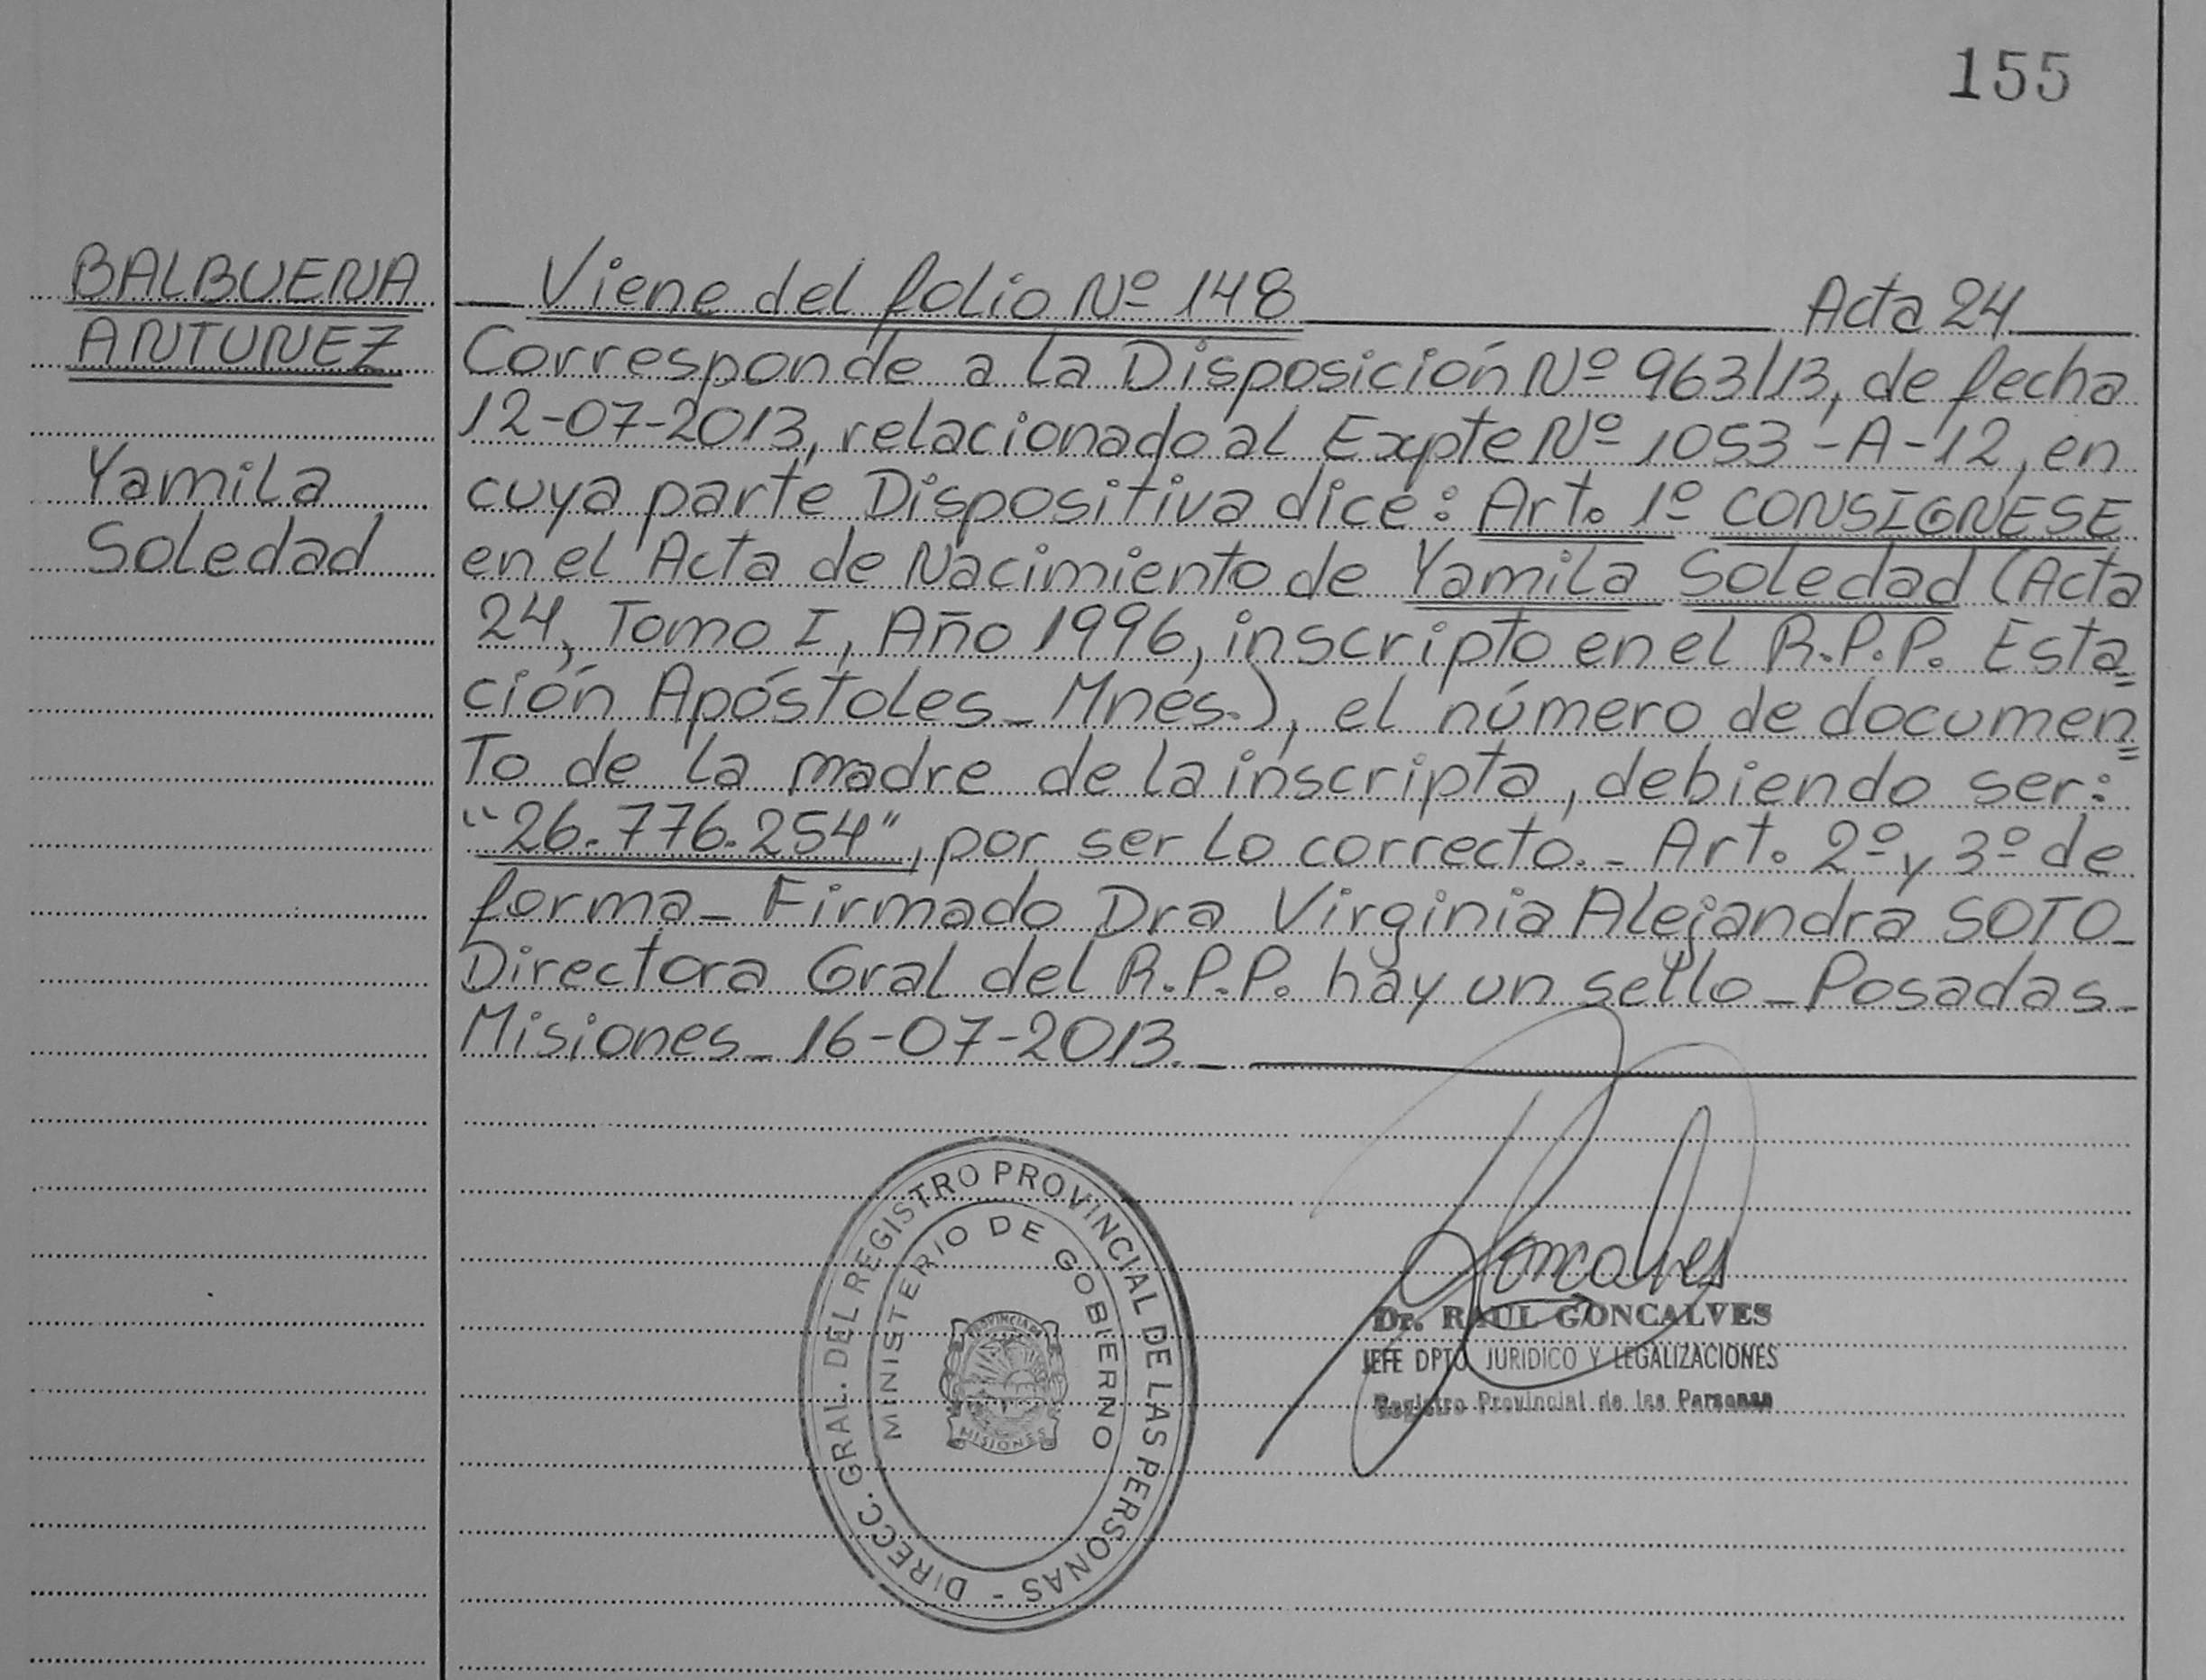 155
BALBUENA
ANTUNEZ
Yamila
Soledad
Viene del folio Nº 148 Acta 24
Corresponde a la Disposición Nº 963/13, de fecha
12-07-2013, relacionado al Expte Nº 1053-A-12, en
cuya parte Dispositiva dice: Art. 1º CONSIGNESE
en el Acta de Nacimiento de Yamila Soledad (Acta
24, Tomo I, Año 1996, inscripto en el R.P.P. Esta=
ción Apóstoles_Mnes.), el número de documen=
to de la madre de la inscripta, debiendo ser:
"26.776.254", por ser lo correcto._ Art. 2º y 3º de
forma_ Firmado Dra Virginia Alejandra SOTO_
Directora Gral del R.P.P. hay un sello_Posadas_
Misiones_ 16-07-2013._
DIRECC. GRAL. DEL REGISTRO PROVINCIAL DE LAS PERSONAS -
MINISTERIO DE GOBIERNO
PROVINCIA DE
MISIONES
Goncalves
Dr. RAUL GONCALVES
JEFE DPTO JURIDICO Y LEGALIZACIONES
Registro Provincial de las Personas